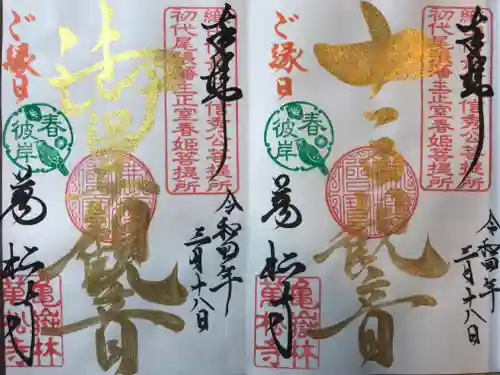 奉拝
信秀公菩提所
初代尾張藩主正室春姫菩提所
ご縁日
春彼岸
観音
令和四年
三月十八日
萬松寺
亀嶽林
萬松寺
奉拝
信秀公菩提所
初代尾張藩主正室春姫菩提所
ご縁日
春彼岸
十一面観音
令和四年
三月十八日
萬松寺
亀嶽林
萬松寺